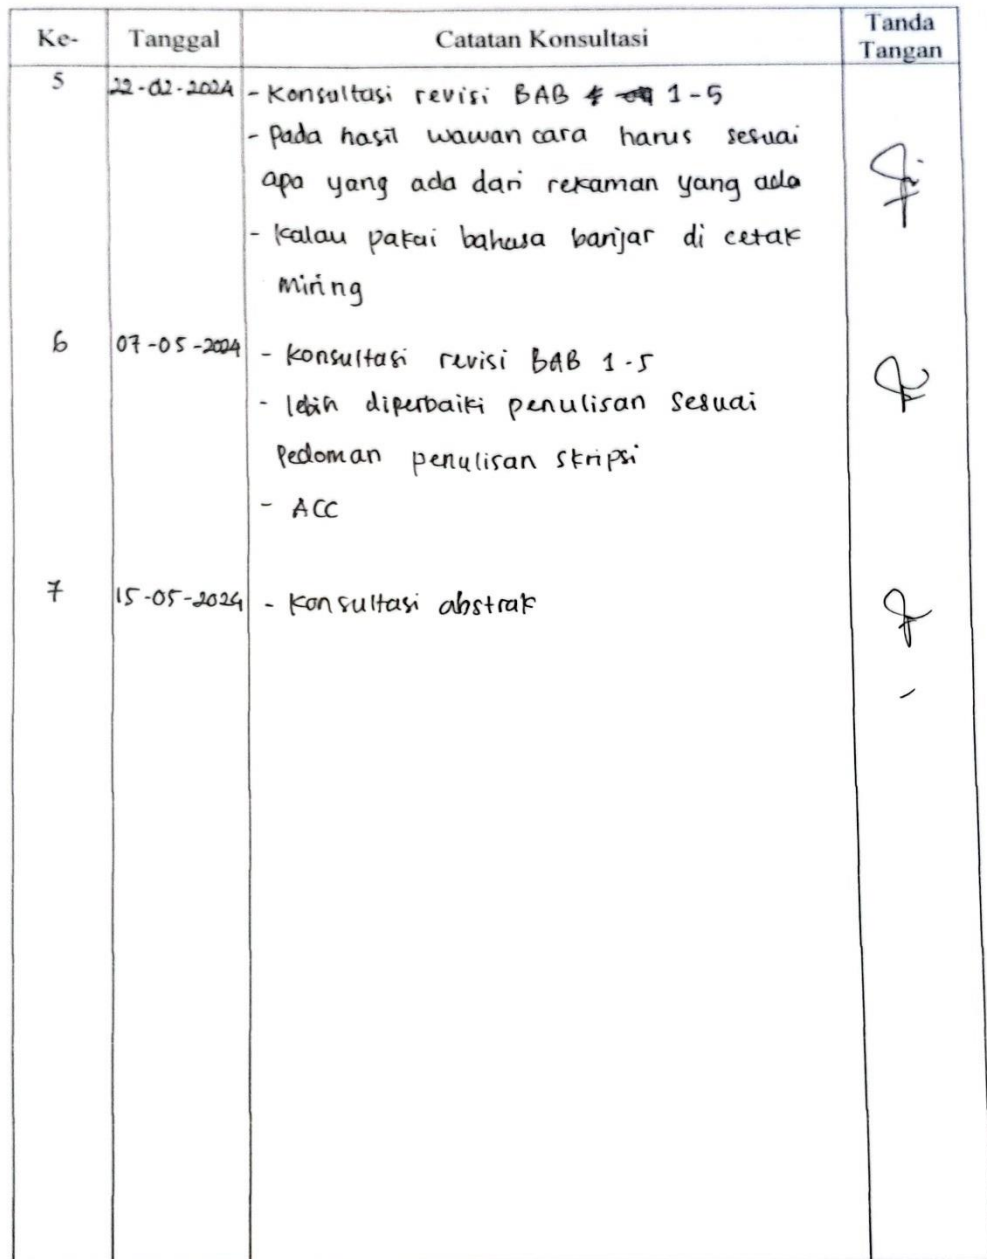 Ke- Tanggal Catatan Konsultasi Tanda Tangan
5 22-02-2024 - Konsultasi revisi BAB 1-5
- Pada hasil wawancara harus sesuai
apa yang ada dari rekaman yang ada
- kalau pakai bahasa banjar di cetak
miring
6 07-05-2024 - konsultasi revisi BAB 1-5
- lebih diperbaiki penulisan sesuai
Pedoman penulisan skripsi
- ACC
7 15-05-2024 - konsultasi abstrak